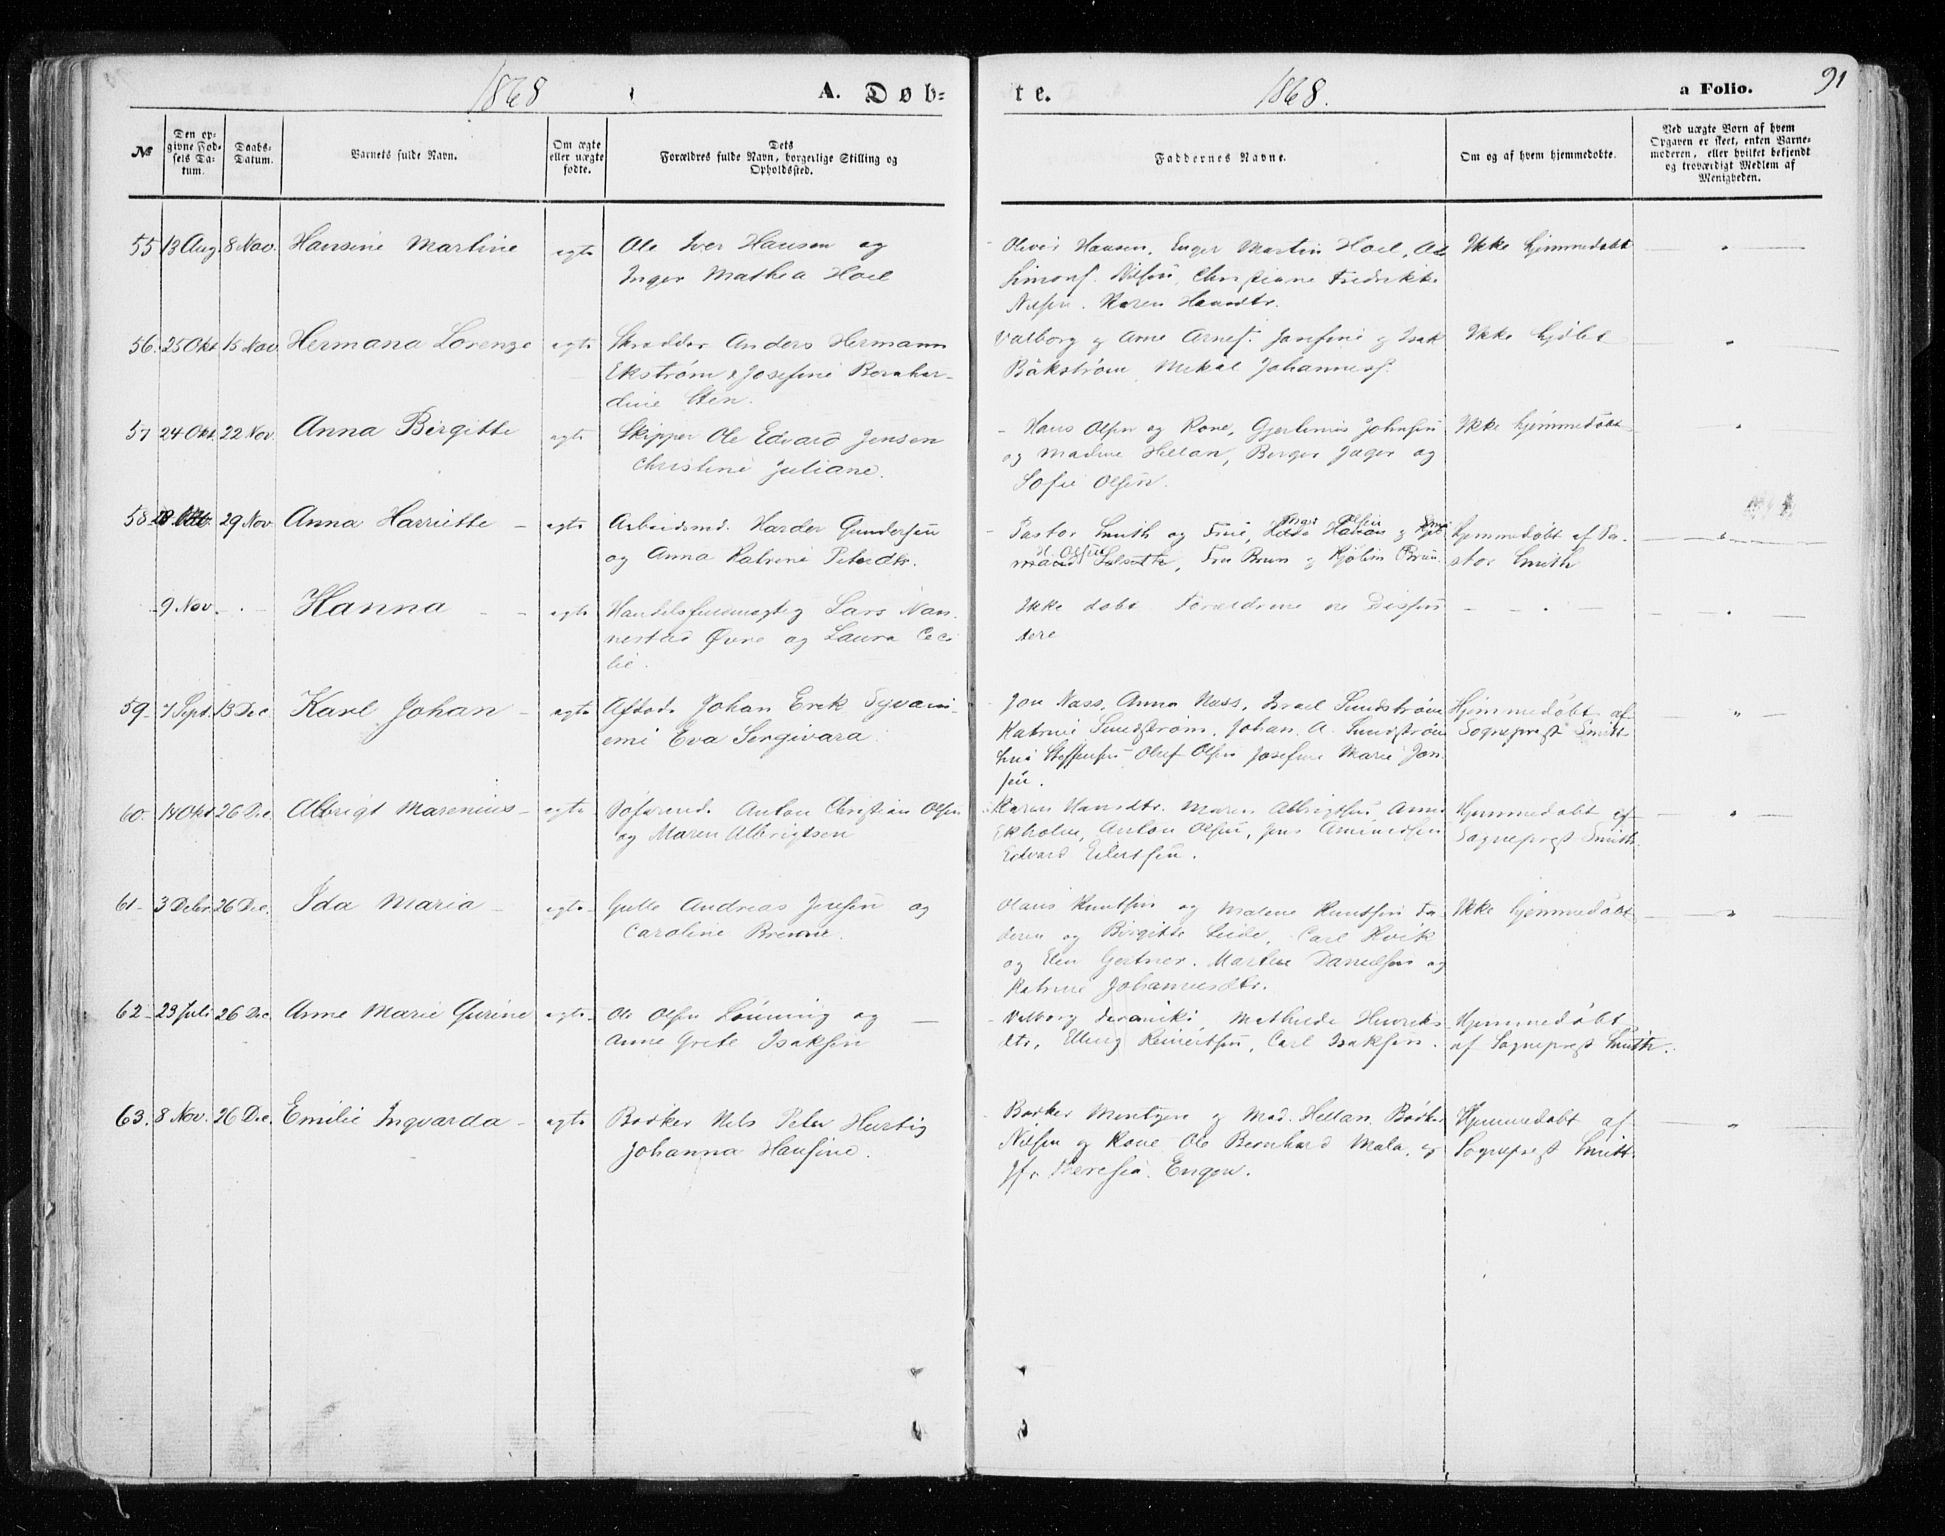 1868 A. Døb-
te. 1868. a Folio. 91
№
Den op-
givne Fød-
sels Da-
tum.
Daabs-
Datum.
Barnets fulde Navn.
Om ægte
eller uægte
fødte.
Dets
Forældres fulde Navn, borgerlige Stilling og
Opholdssted.
Faddernes Navne.
Om og af hvem hjemmedøbte.
Ved uægte Børn af hvem
Opgaven er skeet, enten Barne-
moderen, eller hvilket bekjendt
og troværdigt Medlem af
Menigheden.
55 13 Aug. 8 Nov. Hansine Martine ægte Ole Iver Hansen og
Inger Mathea Hoel
Oliver Hansen, Enger Martin Hoel,
Simons. Nilsen, Christiane Fredrikke
Nilsen. Karen Hansdtr.
Ikke hjemmedøbt
56. 25 Okt 15 Nov. Hermana Lorenze ægte Skrædder Anders Hermann
Ekstrøm & Josefine Bernhar-
dine Sten.
Valborg og Arne Arnes. Josefine og Isak
Bäkström, Mikal Johannes.
Ikke hjdbt
57 24 Okt. 22 Nov. Anna Birgitte ægte Skipper Ole Edvard Jensen
Christine Juliane.
Hans Olsen og Kone, Johnsen
og Madme Hellan, Berger Jæger og
Sofie Olsen.
Ikke hjemmedøbt
58 29 Nov Anna Harriette - ægte Arbeidsmd. Harder Gundersen
og Anna Katrine Pedersdtr.
Pastor Smith og Frue,
Fru Brun og Frøken Brun
Hjemmedøbt af Pa-
stor Smith
9 Nov. Hanna ægte Handelsfuldmægtig Lars Nan-
nestad Øvre og Laura Ceci
lie.
Ikke døbt. Forældrene ere Dissen
tere
59 7 Sept. 13 Dec Karl Johan - ægte Johan Erik
Eva Sergivara
Jon Nass, Anna Nass, Israel Sundstrøm
Katrine Sundstrøm, Johan A. Sundstrøm
Steffensen Oluf Olsen Josefine Marie Jon
sen.
Hjemmedøbt af
Sogneprest Smith
60. 14 Okt 26 Dec. Albrigt Marenius - ægte Søfarende Anton Christian Olsen
og Maren Albrigtsen
Karen Hansdtr. Maren Albrigtsen, Anna
Ekholm, Anton Olsen, Jens Amundsen
Edvard Eilertsen.
Hjemmedøbt af
Sogneprest Smith.
61 3 Debr. 26 Dec. Ida Maria - ægte Andreas Jensen og
Caroline Brenne.
Olaus Knutsen og Malene Knutsen Fa-
deren og Birgitte Carl Kvik
og Elen Gertner. Martin Danielsen og
Katrine Johannesdtr.
Ikke hjemmedøbt
62 23 Juli 26 Dec. Anne Marie Gurine ægte Ole Olsen Lønning og
Anne Grete Isaksen
Valborg Mathilde Henriks
dtr, Elling Reinertsen, Carl Isaksen.
Hjemmedøbt
af Sogneprest Smith.
63. 8 Nov. 26 Dec. Emilie Ingvarda - ægte Bødker Nils Peter Hertig
Johanna Hansine.
Bødker Mentzen og Mad. Hellan. Bødker
Nilsen og Kone Ole Bernhard Mala, og
Jfr. Theresia Engen.
Hjemmedøbt af
Sogneprest Smith